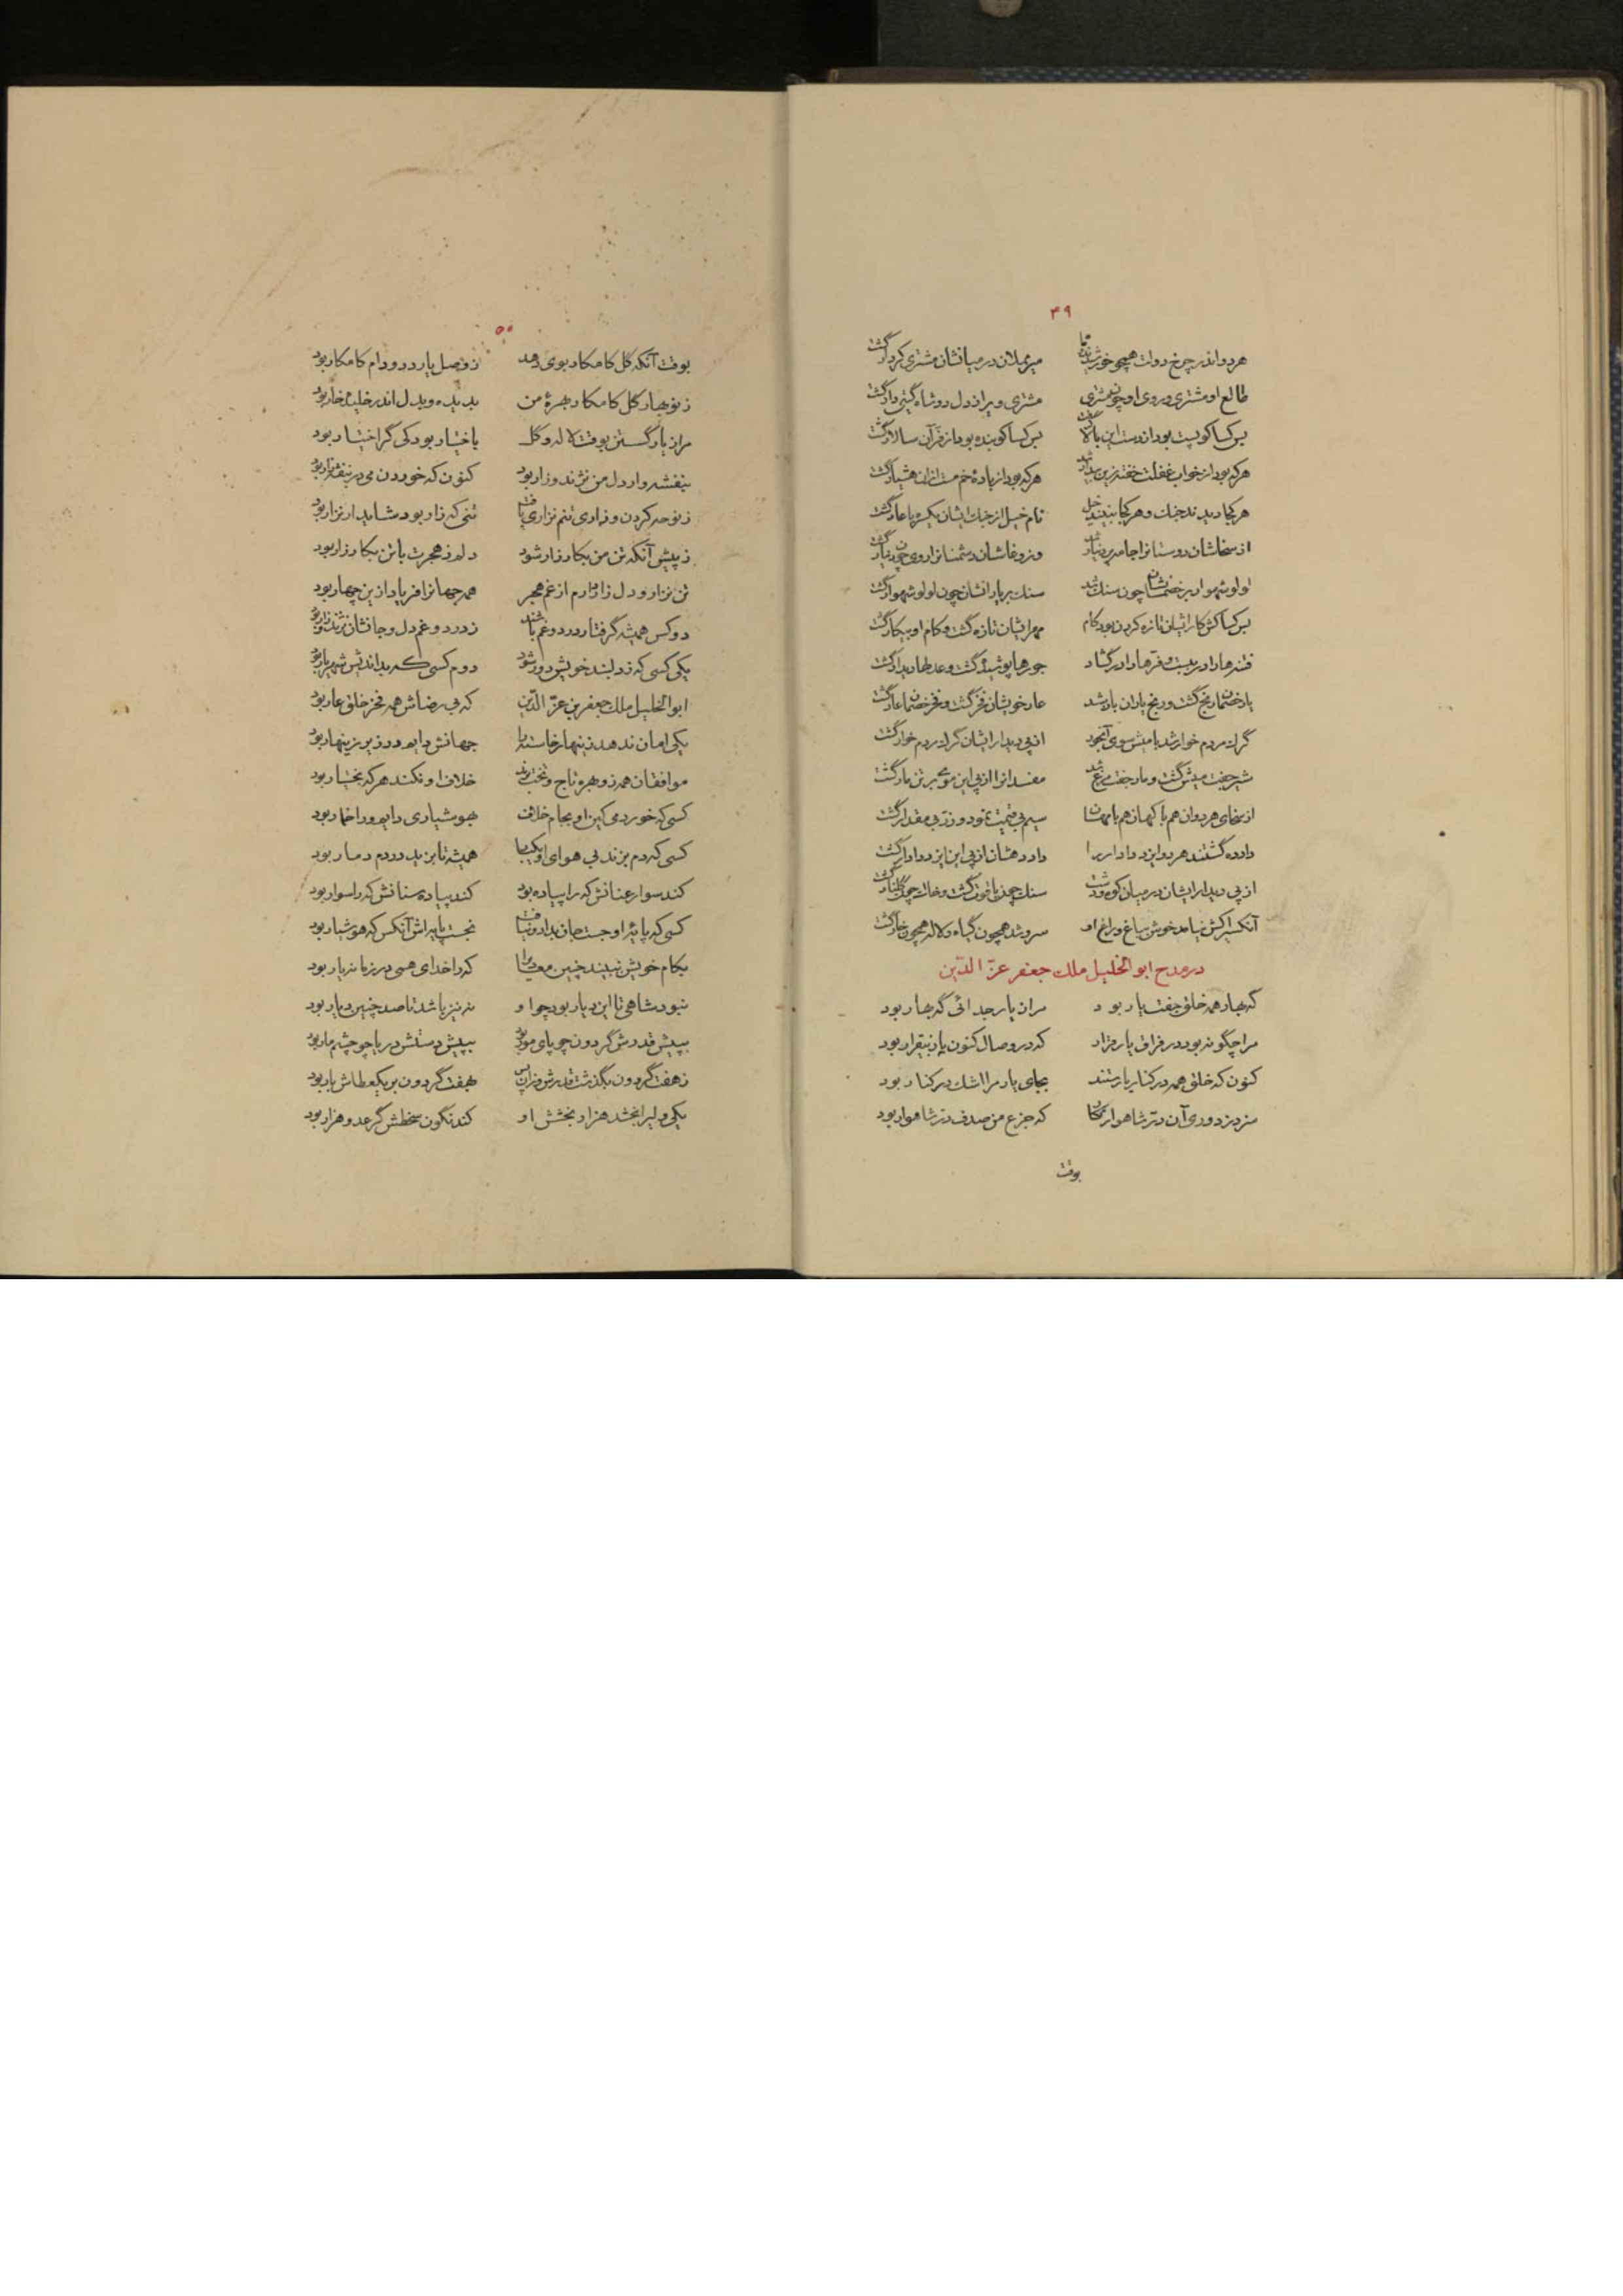 ۴۹
هر دو اندر چرخ دولت همچو خورشیدند و ماه میر مملان در میانشان مشتری کردار گشت
طالع او مشتری و روی او چون مشتری مشتری ویرا ز دل دو شاه گیتی دار گشت
بس کسا کو پست بود از دست این بالا گرفت بس کسا کو بنده بود از فر آن سالار گشت
هر که بود از خواب غفلت خفته زین بیدار شد هر که بود از باده خم مست ازان هشیار گشت
هر کجا دیدند جنک و هر کجا بینند خیل نام خیل از جنک ایشان یکسره با عار گشت
از سخاشان دوستانرا جامه پر دینار شد وز وغاشان دشمنانرا روی چون دینار گشت
لولو شهوار بر خصمانشان چون سنک شد سنک بر یارانشان چون لولو شهوار گشت
بس کسا کش کار ایشان تازه کردن بود کام مهر ایشان تازه گشت و کام او بیکار گشت
فتنه‌ها را در ببست و فرّه‌ها را در گشاد جورها پوشیده گشت و عدلها دیدار گشت
یار خصمان رنج گشت و رنج یاران یار شد عار خویشان فخر گشت و فخر خصمان عار گشت
گرک مردم خوار شد با میش سوی آبخور از پی دیدار ایشان گرک مردم خوار گشت
شیر جفت میش گشت و مار جفت مرغ شد مفسدانرا از پی این موی بر تن مار گشت
از سخای هر دوان هم با کهان هم با مهان سیم بی قیمت نمود و زر بی مقدار گشت
داده گشتند هر دو ایزد دادار را داد دهشان از پی این ایزد دادار گشت
از پی دیدار ایشان در میان کوه و دشت سنک چون یاقوت گشت و خاک چون گلنار گشت
آنکسی را کش نیامد خوش بباغ و راغ او سرو شد همچون گیاه و لاله همچون خار گشت
در مدح ابو الخلیل ملک جعفر عزّ الدّین
گه بهار همه خلق جفت یار بود مرا ز یار جدائی گه بهار بود
مرا چگونه بود در فراق یار قرار که در وصال کنون یار بیقرار بود
کنون که خلق همه در کنار یار شنند بجای یار مرا اشک در کنار بود
منم ز دوری آن درّ شاهوار نگار که جزع من صدف درّ شاهوار بود
بوقت
۵۰
بوقت آنکه گل کامکار بوی دهد ز وصل یار ددو دام کامکار بود
ز نو بهار گل کامکار بهرهٔ من بدیده و بدل اندر خلیده خار بود
مرا ز یار گسستن بوقت لاله و گل باختیار بود کی گر اختیار بود
بنفشه وار دل من نژند و زار بود کنون که خوردن می در بنفشه‌زار بود
ز نوحه کردن و زاری تنم نزاری یافت تنی که زار بود شاید ار نزار بود
ز پیش آنکه تن من بکار زار شود دلم ز هجرت با تن بکارزار بود
تن نزار و دل زار دارم از غم هجر همه جهانرا فریاد ازین چهار بود
دو کس همیشه گرفتار درد و غم باشند ز درد و غم دل و جانشان نژند و زار بود
یکی کسی که ز دلبند خویش دور شود دوم کسی که بد اندیش شهریار بود
ابو الخلیل ملک جعفر بن عزّ الدّین که بی رضاش همه فخر خلق عار بود
یکی امان ندهد زینهار خاسته را جهانش دایم در زیر زینهار بود
موافقان همه زو بهره تاج و تخت برند خلاف او نکند هر که بختیار بود
کسی که خورد می کین او بجام خلاف بهوشیاری دایم ورا خمار بود
کسی که دم بزند بی هوای او یکبار همیشه تا بزید در دم دمار بود
کند سوار عنانش که را پیاده بود کند پیاده سنانش که را سوار بود
کسی که پایهٔ او جست جان بداد و نیافت نجست پایه‌اش آنکس که هوشیار بود
بکام خویش نبیند چنین معین را که را خدای همی در زمانه یار بود
نبود شاهی تا این دیار بود چو او نه نیز باشد تا صد چنین دیار بود
بپیش قدرش گردون چو پای مور بود بپیش دستش دریا چو چشم مار بود
ز هفت گردون بگذشت قدرش و زان پس بهفت گردون بر یک عطاش بار بود
یکی ولیرا بخشد هزار بخشش او کند نگون سخطش گر عدو هزار بود